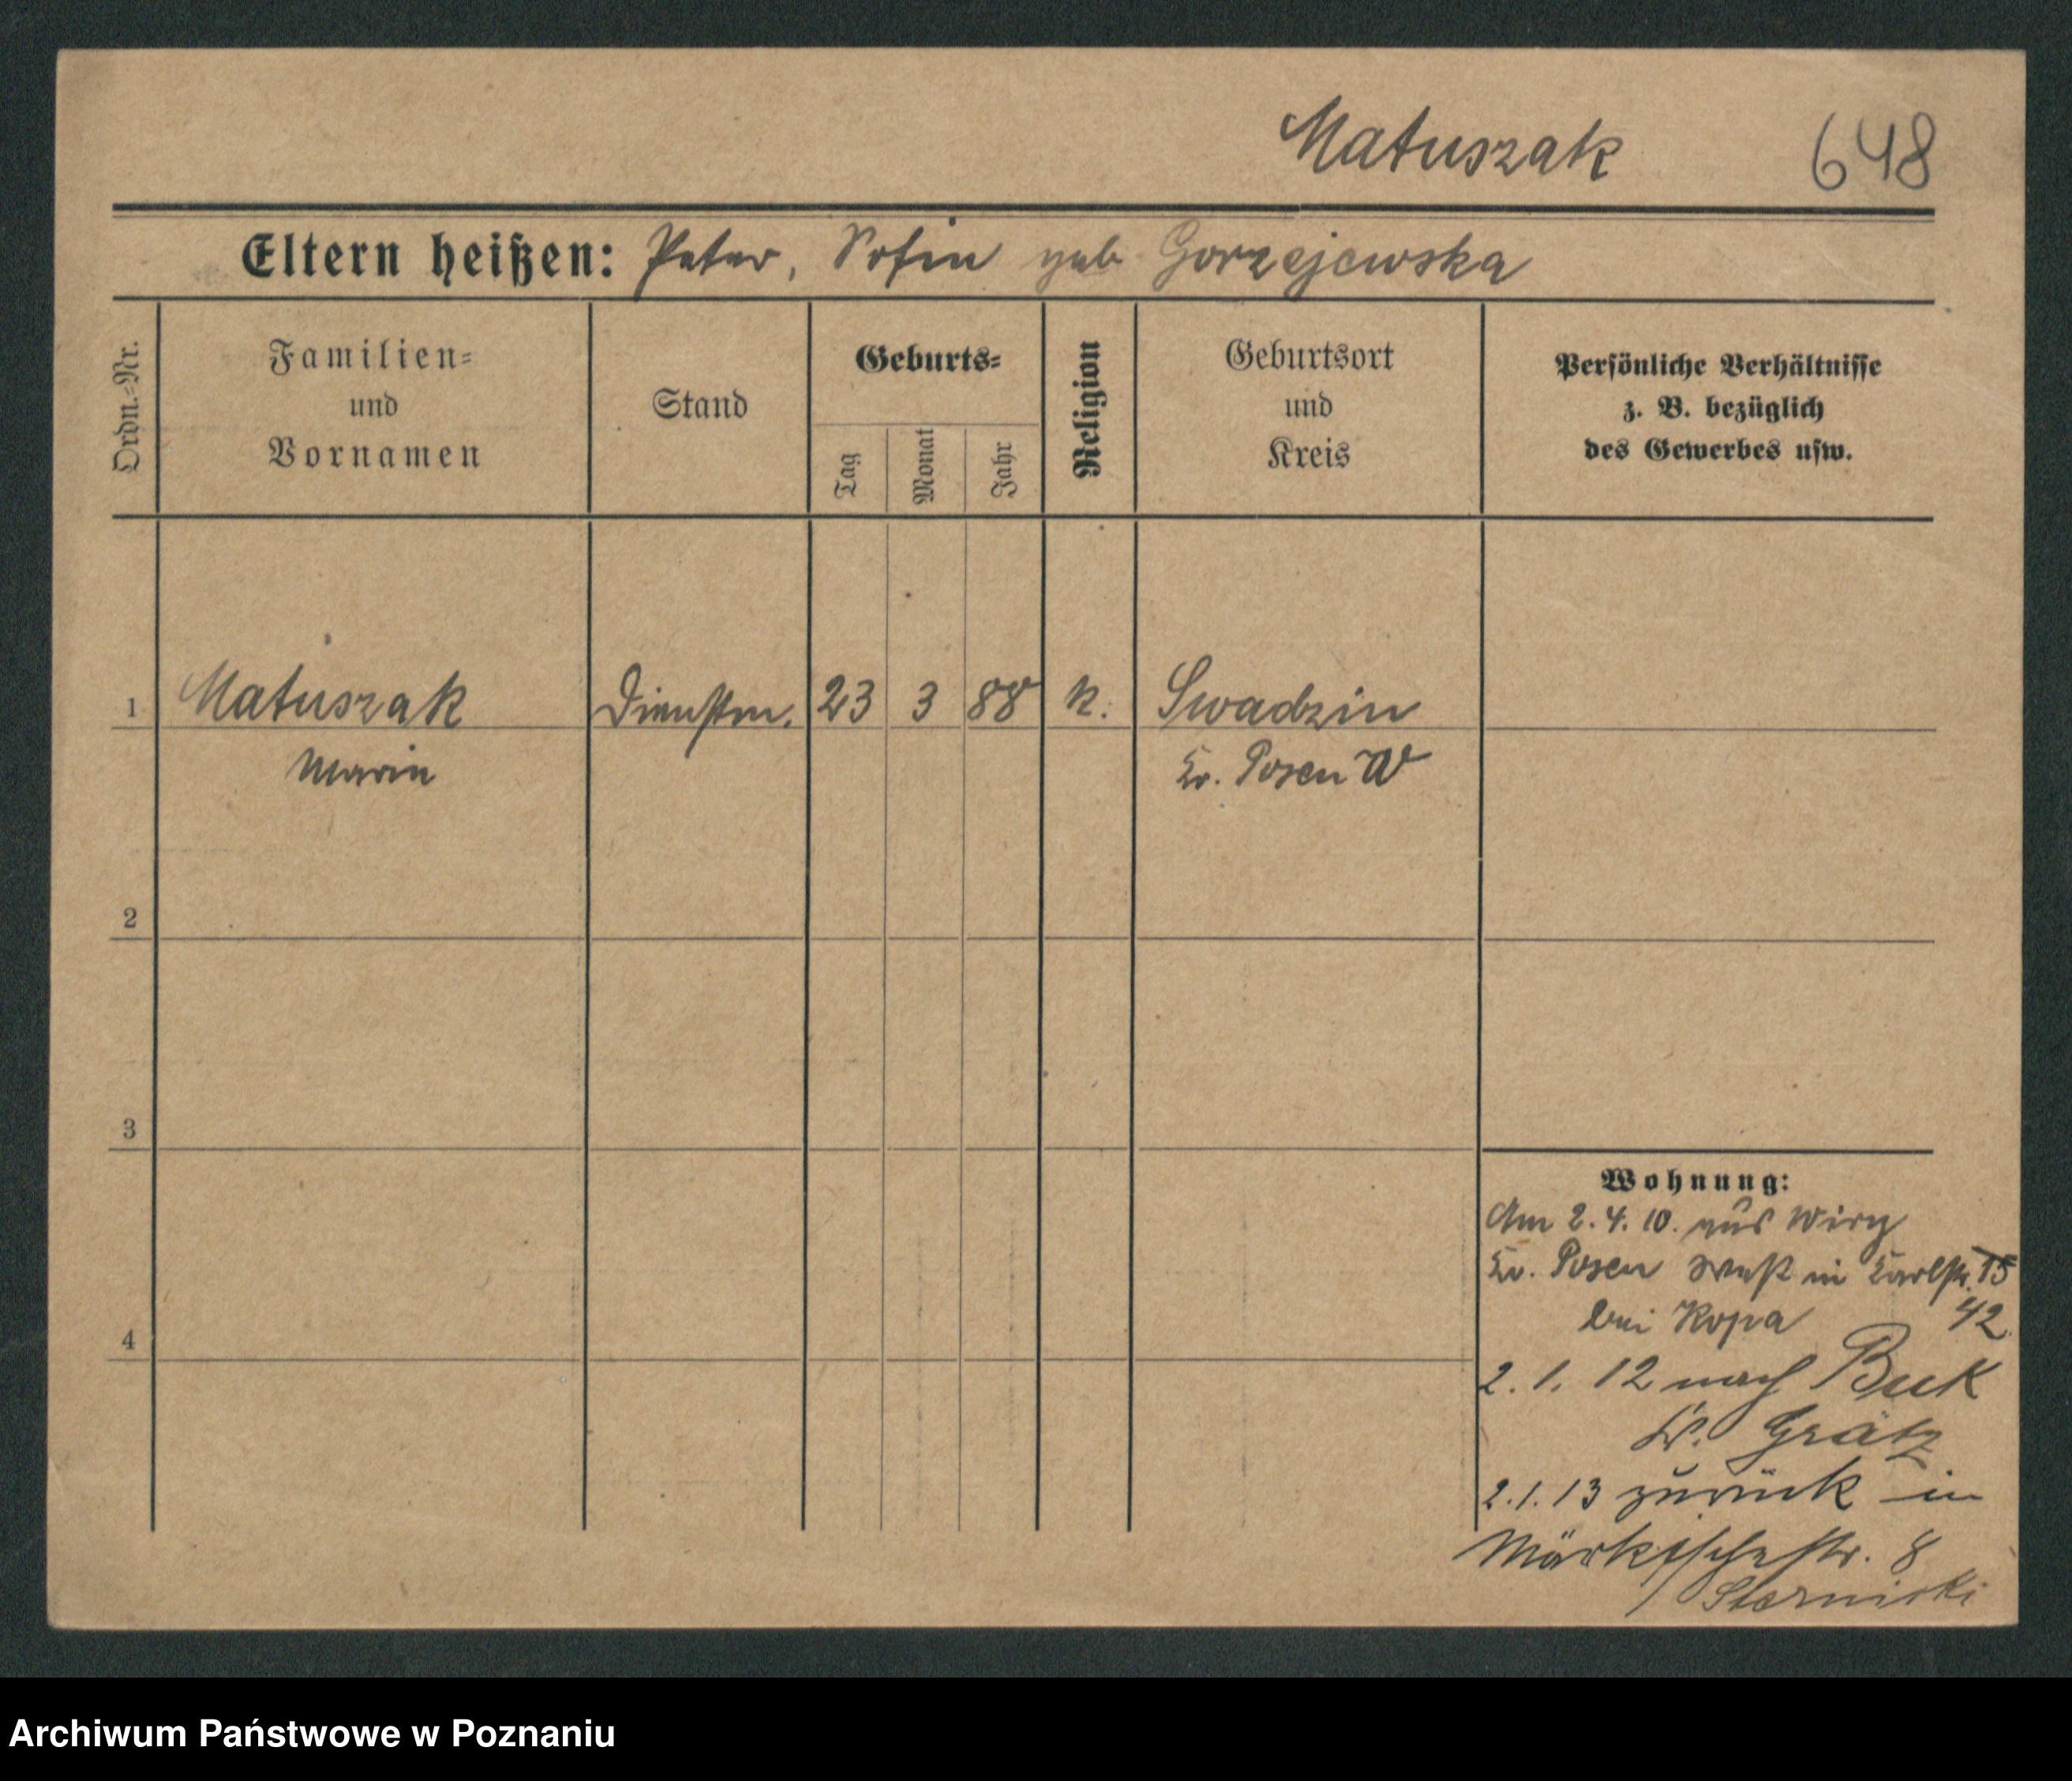 Matuszak 648
Eltern heißen: Peter, Sofie geb Gorzejewska
Ordn.-Nr.
Familien-
und
Vornamen
Stand
Geburts-
Tag
Monat
Jahr
Religion
Geburtsort
und
Kreis
Persönliche Verhältnisse
z. B. bezüglich
des Gewerbes usw.
1 Matuszak Dienstm. 23 3 88 k. Swadzin
Marie Kr. Posen W
2
3
4
Wohnung:
Am 2. 4. 10. aus Wiry
Kr. Posen West in Karlstr. 15
bei Kopa 42
2. 1. 12 nach Buk
Kr. Grätz
2. 1. 13 zurück in
Märkischestr. 8
Archiwum Państwowe w Poznaniu